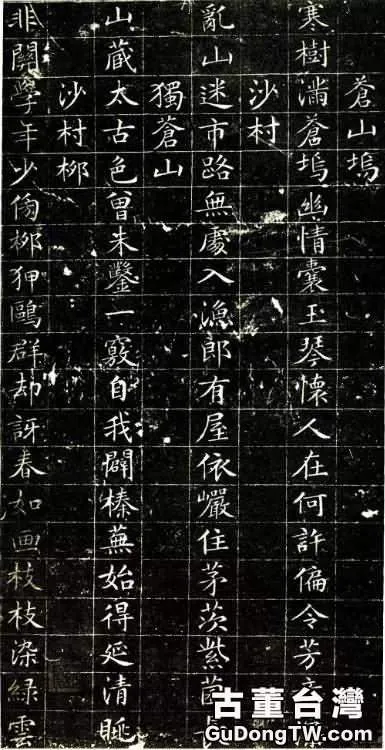 蒼山塢
寒樹滿蒼塢幽情囊玉琴懷人在何許偏令芳
沙村
亂山迷市路無處入漁郎有屋依巖住茅茨紫
獨蒼山
山藏太古色曾未鑿一竅自我闢榛蕪始得延清眺
沙村柳
非關學年少傍柳狎鷗群却訝春如画枝枝染綠雲
古董台灣
GuDongTW.com